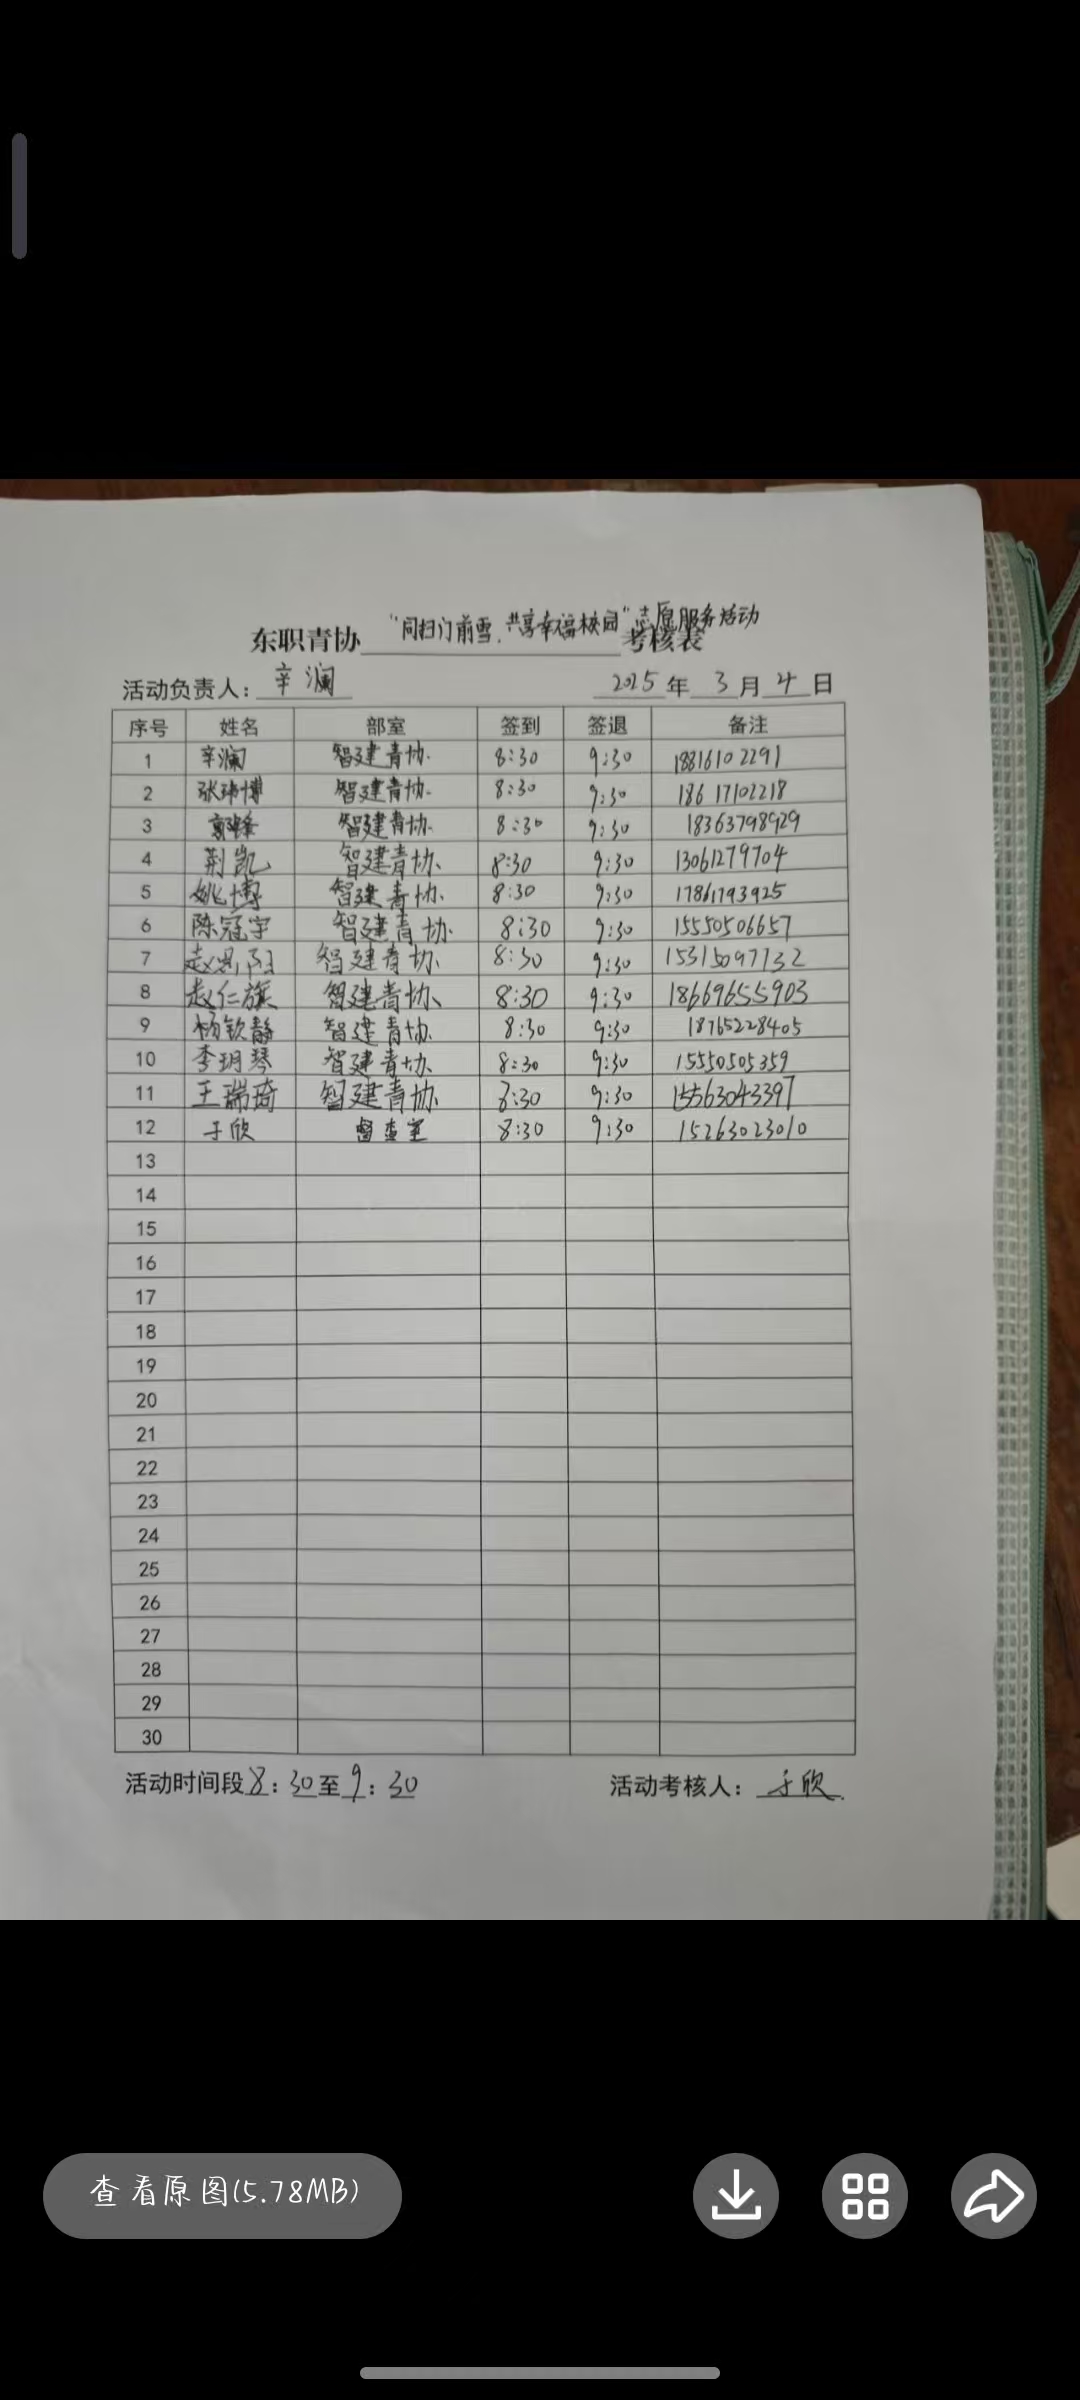 "同扫门前雪,共享幸福校园"志愿服务活动
东职青协 考核表
活动负责人: 辛澜 2025 年 3 月 4 日
序号 姓名 部室 签到 签退 备注
1 辛澜 智建青协 8:30 9:30 18816102291
2 张玮博 智建青协 8:30 9:30 18617102218
3 智建青协 8:30 9:30 18363798929
4 荆凯 智建青协 8:30 9:30 13061279704
5 姚博 智建青协 8:30 9:30 17861793925
6 陈冠宇 智建青协 8:30 9:30 15550506657
7 智建青协 8:30 9:30 15315097132
8 赵仁旗 智建青协 8:30 9:30 18669655903
9 杨钦静 智建青协 8:30 9:30 18765228405
10 李玥琴 智建青协 8:30 9:30 15550505359
11 王瑞琦 智建青协 8:30 9:30 15563043397
12 于欣 督查室 8:30 9:30 15263023010
13
14
15
16
17
18
19
20
21
22
23
24
25
26
27
28
29
30
活动时间段 8:30 至 9:30 活动考核人: 于欣.
查看原图(5.78MB)